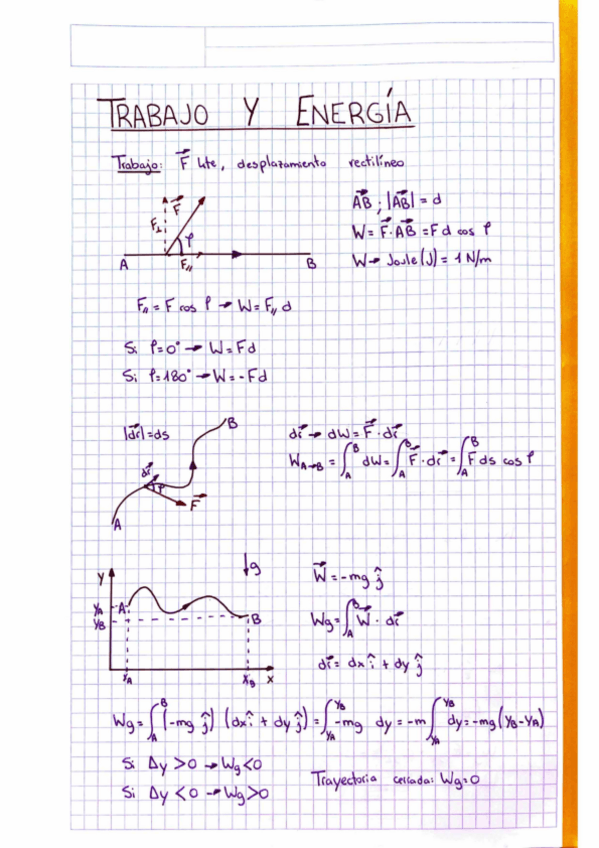 TRABAJO Y ENERGÍA
Trabajo: F⃗ cte, desplazamiento rectilíneo
F⃗
F⊥
φ
A F// B
AB⃗ ; |AB⃗| = d
W = F⃗·AB⃗ = F d cos φ
W → Joule (J) = 1 N/m
F// = F cos φ → W = F// d
Si φ=0° → W = Fd
Si φ=180° → W = -Fd
|dr⃗| = ds
B
dr⃗
φ
F⃗
A
dr⃗ → dW = F⃗·dr⃗
W A→B = ∫_A^B dW = ∫_A^B F⃗·dr⃗ = ∫_A^B F ds cos φ
↓g
Y
YA A
YB B
XA XB X
W⃗ = -mg ĵ
Wg = ∫_A^B W⃗ · dr⃗
dr⃗ = dx î + dy ĵ
Wg = ∫_A^B (-mg ĵ) (dx î + dy ĵ) = ∫_YA^YB -mg dy = -m ∫_YA^YB dy = -mg (YB - YA)
Si Δy > 0 → Wg < 0
Si Δy < 0 → Wg > 0
Trayectoria cerrada: Wg = 0